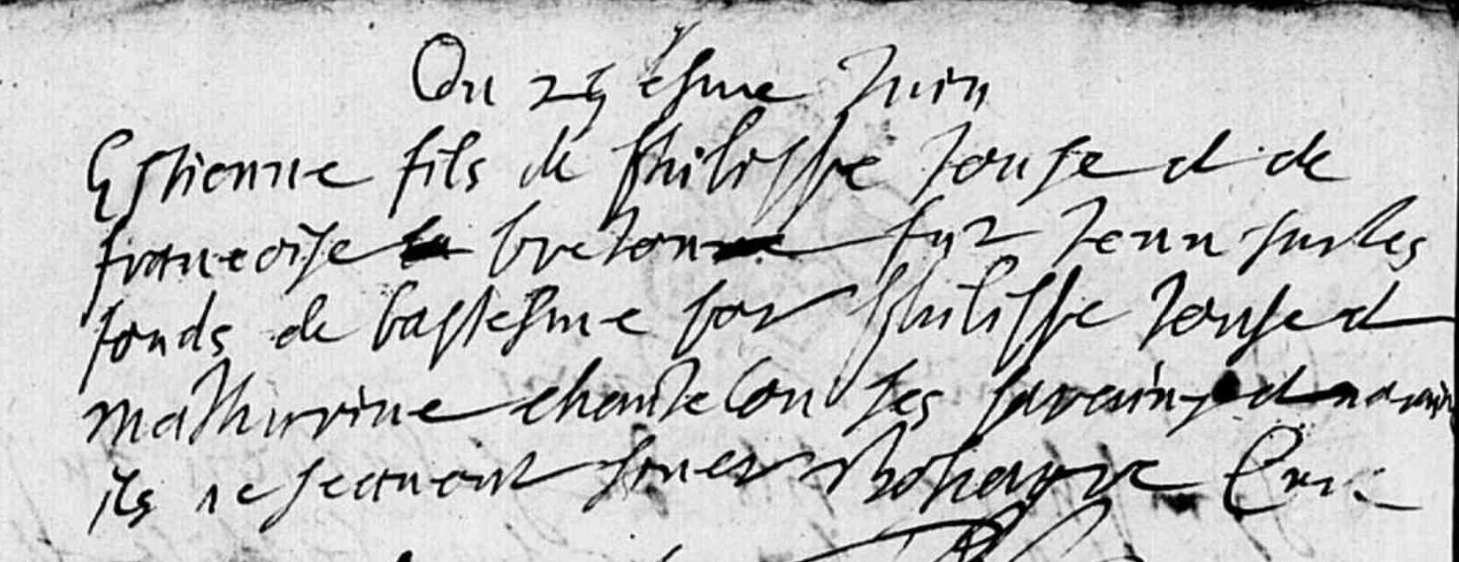 Du 25 esme Juin
Estienne fils de Philippe et de
francoise breton fut tenu sur les
fonds de baptesme par Philippe et
mathurine chantelou ses parain et marain
ils ne scavent signer